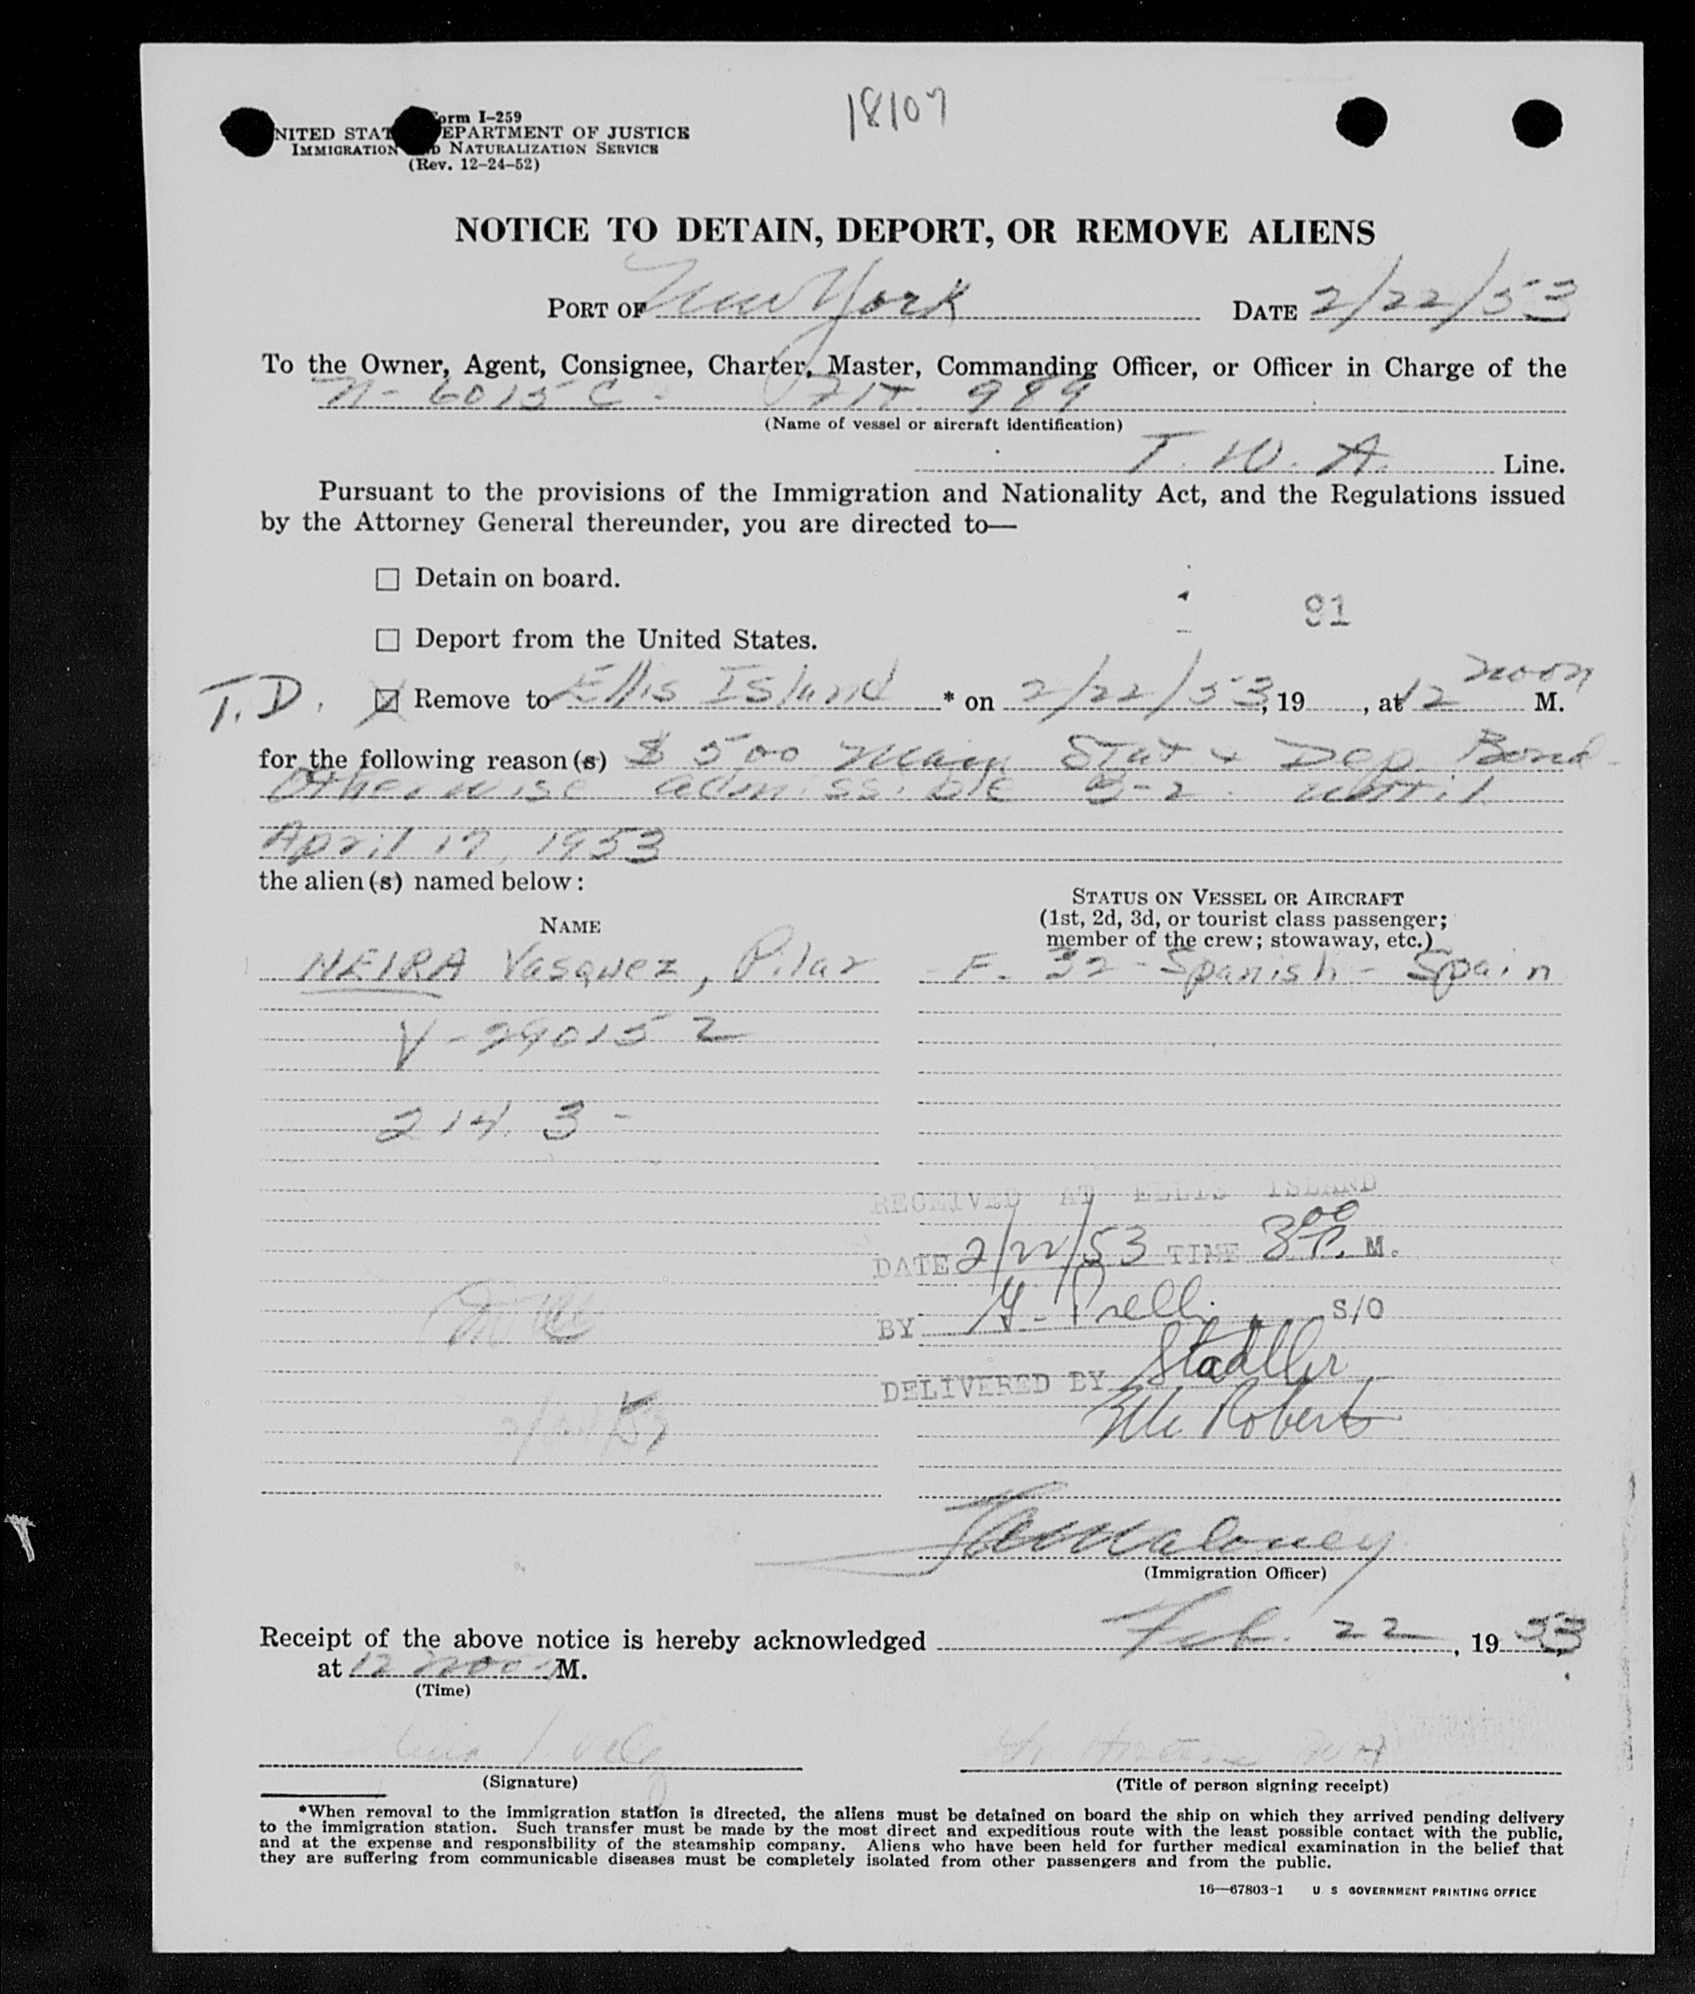 18107
Form I-259
UNITED STATES DEPARTMENT OF JUSTICE
IMMIGRATION AND NATURALIZATION SERVICE
(Rev. 12-24-52)
NOTICE TO DETAIN, DEPORT, OR REMOVE ALIENS
PORT OF New York DATE 2/22/53
To the Owner, Agent, Consignee, Charter, Master, Commanding Officer, or Officer in Charge of the
N-6015C. Flt. 989
(Name of vessel or aircraft identification)
T. W. A. Line.
Pursuant to the provisions of the Immigration and Nationality Act, and the Regulations issued
by the Attorney General thereunder, you are directed to—
☐ Detain on board.
91
☐ Deport from the United States.
T.D. ☒ Remove to Ellis Island * on 2/22/53, 19 , at 12 noon M.
for the following reason(s) $500 Main Stat + Dep Bond
Otherwise admissible B-2 until
April 17, 1953
the alien(s) named below:
NAME
STATUS ON VESSEL OR AIRCRAFT
(1st, 2d, 3d, or tourist class passenger;
member of the crew; stowaway, etc.)
NEIRA Vasquez, Pilar F. 32 - Spanish - Spain
V-290152
214.3-
RECEIVED AT ELLIS ISLAND
DATE 2/22/53 TIME 3 00 P. M.
BY Y. Prelli S/O
DELIVERED BY Stadtler
Roberts
Maloney
(Immigration Officer)
Receipt of the above notice is hereby acknowledged Feb. 22, 19 53
at 12 noon M.
(Time)
(Signature)
(Title of person signing receipt)
*When removal to the immigration station is directed, the aliens must be detained on board the ship on which they arrived pending delivery
to the immigration station. Such transfer must be made by the most direct and expeditious route with the least possible contact with the public,
and at the expense and responsibility of the steamship company. Aliens who have been held for further medical examination in the belief that
they are suffering from communicable diseases must be completely isolated from other passengers and from the public.
16—67803-1 U. S. GOVERNMENT PRINTING OFFICE